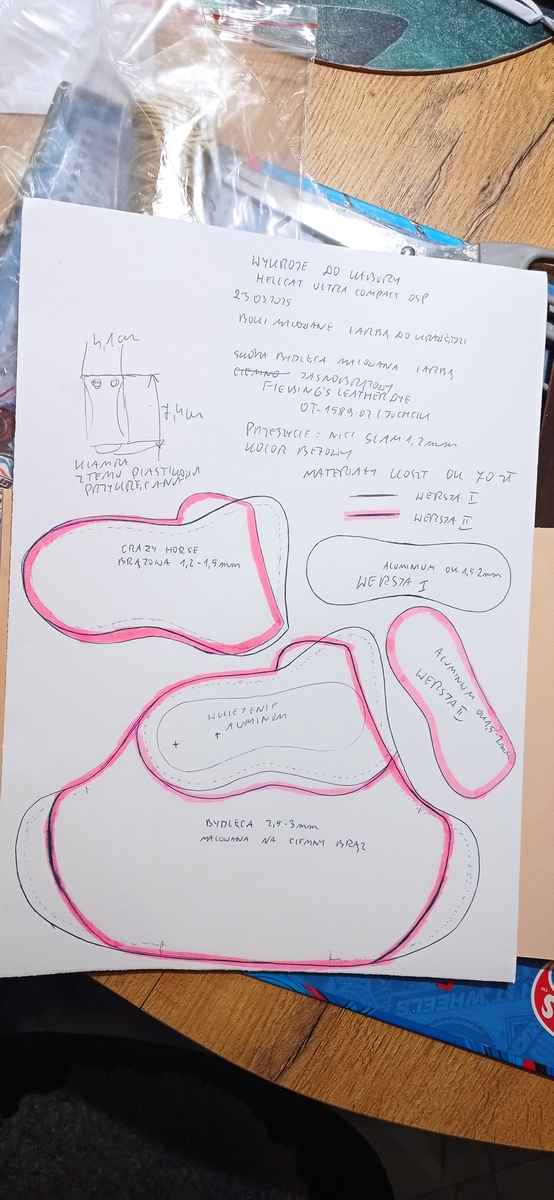 WYKROJE DO KABURY
HELLCAT ULTRA COMPACT OSP
23.03.2025
BOKI MALOWANE FARBĄ DO KRAWĘDZI
SKÓRA BYDLĘCA MALOWANA FARBĄ
CIEMNO JASNOBRĄZOWY
FIEBING'S LEATHER DYE
PRZESZYCIE: NICI SLAM 1,2mm
KOLOR BEŻOWY
MATERIAŁY KOSZT OK 70 zł
4,1cm
7,4cm
KLAMRA
Z TEMU PLASTIKOWA
PRZYKRĘCANA
WERSJA I
WERSJA II
CRAZY HORSE
BRĄZOWA 1,2-1,5mm
ALUMINIUM OK 1,5-2mm
WERSJA I
ALUMINIUM OK 1,5-2mm
WERSJA II
ALUMINIUM
BYDLĘCA 2,5-3mm
MALOWANA NA CIEMNY BRĄZ
WHEELS